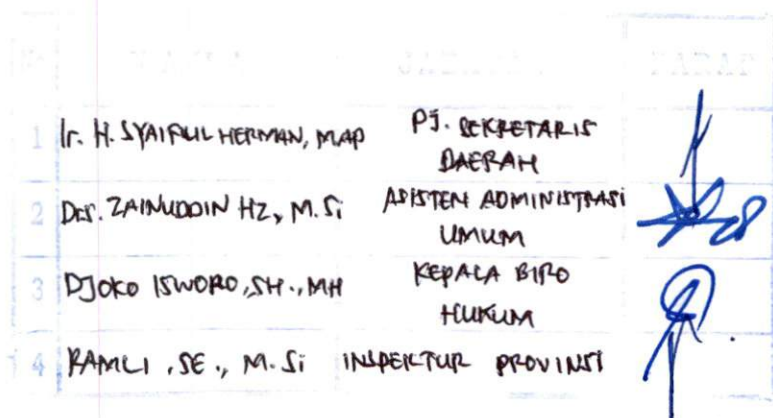 1 Ir. H. SYAIFUL HERMAN, MAP PJ. SEKRETARIS
DAERAH
2 Drs. ZAINUDDIN HZ, M.Si ASISTEN ADMINISTRASI
UMUM
3 DJOKO ISWORO, SH., MH KEPALA BIRO
HUKUM
4 RAMLI, SE., M.Si INSPEKTUR PROVINSI